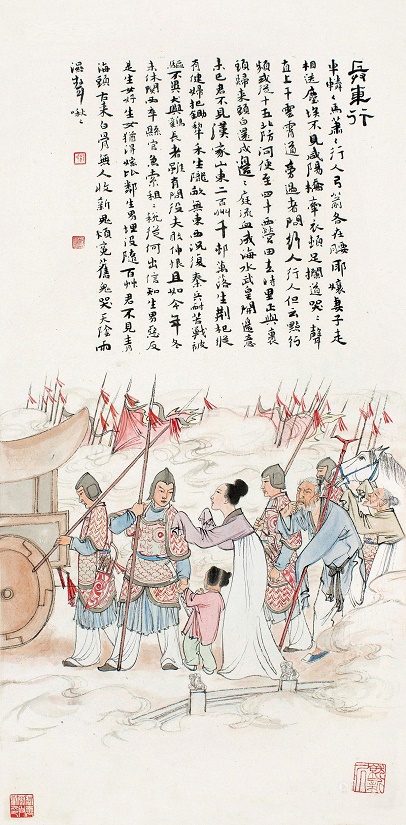 兵車行
車轔々馬蕭々行人弓箭各在腰耶孃妻子走
相送塵埃不見咸陽橋牽衣頓足攔道哭々聲
直上干雲霄道旁過者問行人行人但云點行
頻或從十五北防河便至四十西營田去時里正與裹
頭歸來頭白還戍邊々庭流血成海水武皇開邊意
未已君不見漢家山東二百州千邨萬落生荆杞縱
有健婦把鋤犁禾生隴畝無東西況復秦兵耐苦戰被
驅不異犬與雞長者雖有問役夫敢伸恨且如今年冬
未休關西卒縣官急索租租稅從何出信知生男惡反
是生女好生女猶得嫁比鄰生男埋没隨百艸君不見青
海頭古來白骨無人收新鬼煩冤舊鬼哭天陰雨
濕聲啾々